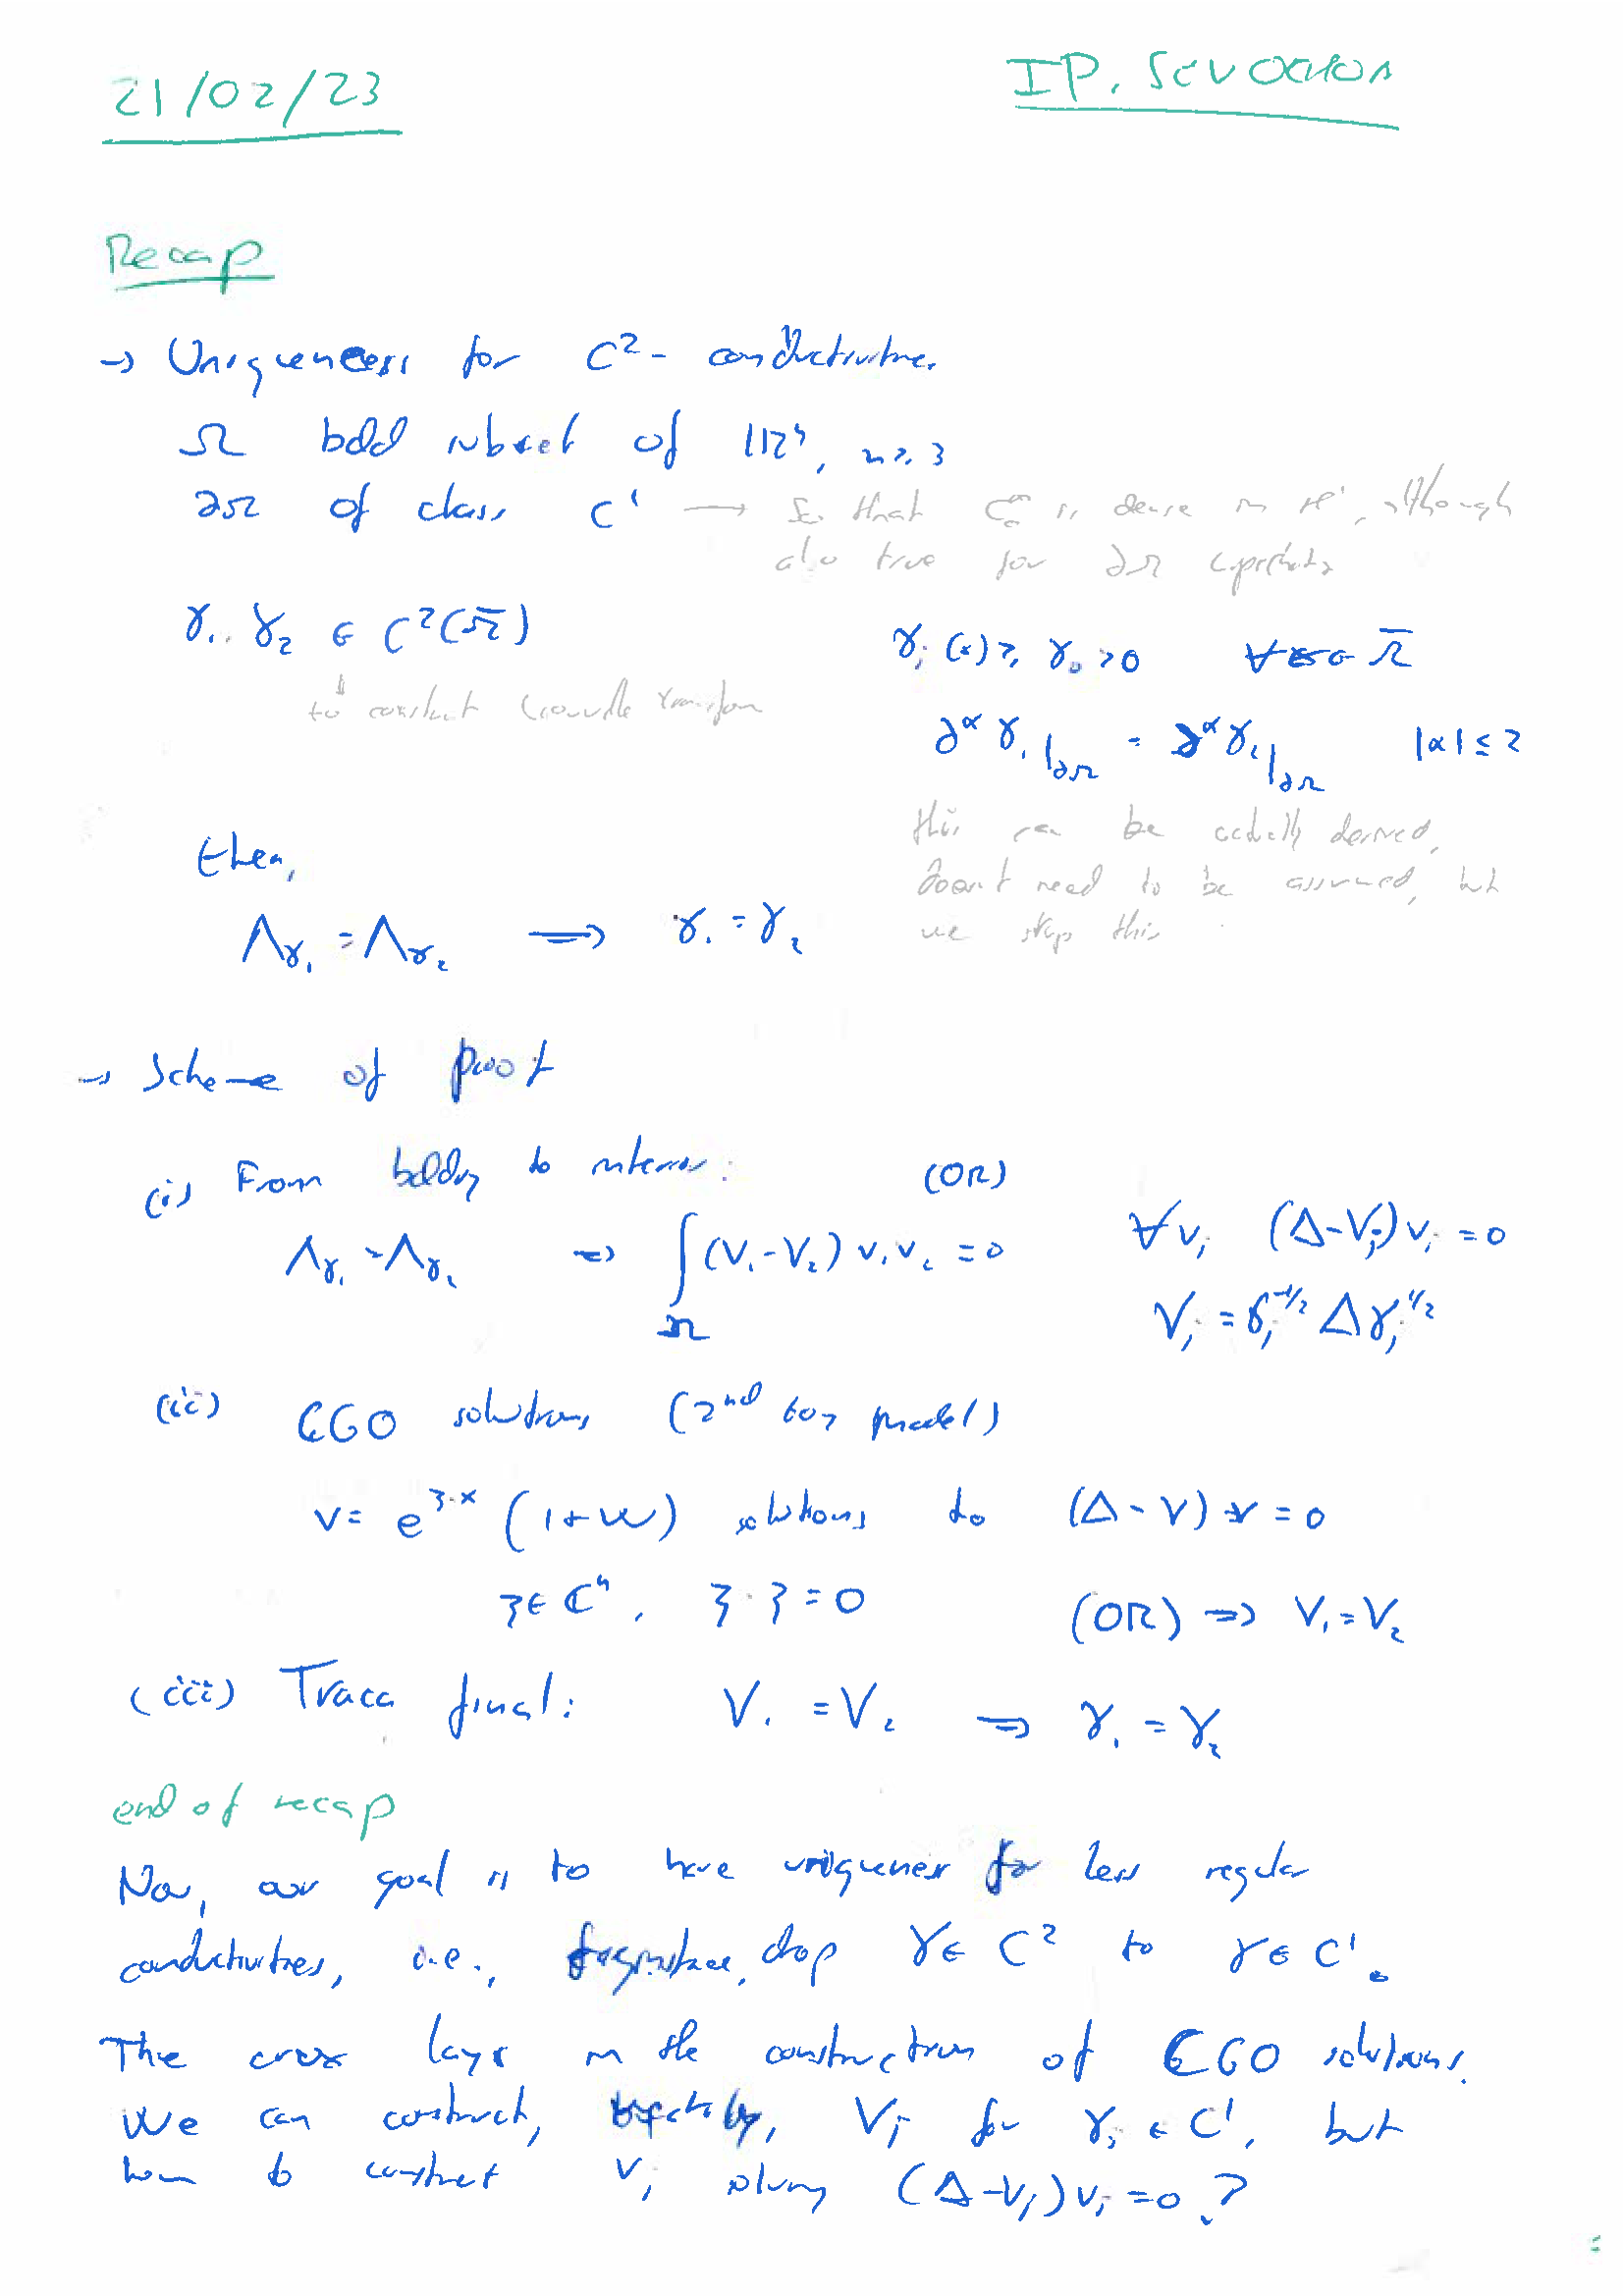 21/02/23
IP.
Recap
→ Uniqueness for C²-conductivities
Ω bdd subset of ℝⁿ, n ≥ 3
∂Ω of class C¹ → So that C^∞ is dense in H¹, although
also true for ∂Ω Lipschitz
γ₁, γ₂ ∈ C²(Ω̄)
γⱼ(x) ≥ γ₀ > 0 ∀x ∈ Ω̄
to construct Liouville transform
∂^α γ₁|∂Ω = ∂^α γ₂|∂Ω |α| ≤ 2
this can be actually derived,
doesn't need to be assumed, but
we skip this
then,
Λγ₁ = Λγ₂ ⟹ γ₁ = γ₂
→ Scheme of proof
(i) From bddry to interior: (OR)
Λγ₁ = Λγ₂ ⇒ ∫_Ω (V₁-V₂) v₁v₂ = 0 ∀vⱼ (Δ-Vⱼ)vⱼ = 0
Vⱼ = γⱼ^{-1/2} Δγⱼ^{1/2}
(ii) CGO solutions (2nd toy model)
v = e^{ζ·x} (1+w) solutions to (Δ-V)v = 0
ζ ∈ ℂⁿ, ζ·ζ = 0 (OR) ⇒ V₁ = V₂
(iii) Traca final: V₁ = V₂ ⇒ γ₁ = γ₂
end of recap
Now, our goal is to have uniqueness for less regular
conductivities, i.e., for instance, drop γ ∈ C² to γ ∈ C¹.
The crux lays in the construction of CGO solutions.
We can construct, Vⱼ for γⱼ ∈ C¹, but
how to construct vⱼ solving (Δ-Vⱼ)vⱼ = 0?